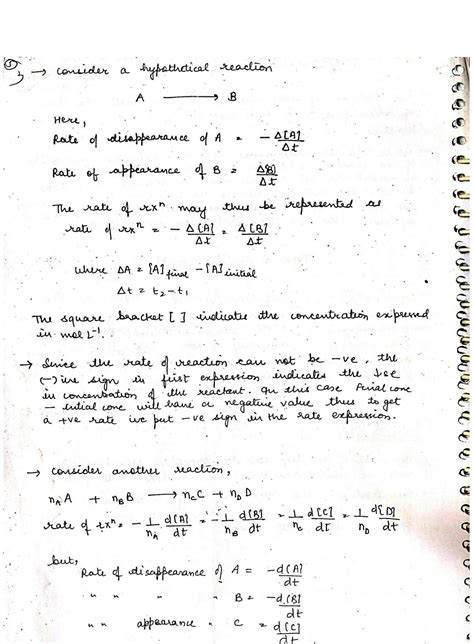 → Consider a hypothetical reaction
A ⟶ B
Here,
Rate of disappearance of A = - Δ[A]/Δt
Rate of appearance of B = Δ[B]/Δt
The rate of rxⁿ may thus be represented as
rate of rxⁿ = - Δ[A]/Δt = Δ[B]/Δt
where ΔA = [A]final - [A]initial
Δt = t₂-t₁
The square bracket [ ] indicates the concentration expressed
in mol L⁻¹.
→ Since the rate of reaction can not be -ve, the
(-)ive sign in first expression indicates the ↓se
in concentration of the reactant. In this case Final conc
- initial conc will have a negative value thus to get
a +ve rate we put -ve sign in the rate expression.
→ Consider another reaction,
n_A A + n_B B ⟶ n_C C + n_D D
rate of rxⁿ = - 1/n_A d[A]/dt = - 1/n_B d[B]/dt = 1/n_C d[C]/dt = 1/n_D d[D]/dt
but,
Rate of disappearance of A = -d[A]/dt
" " " " B = -d[B]/dt
" " appearance " C = d[C]/dt